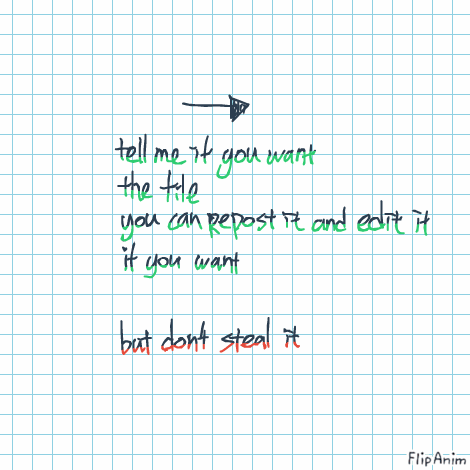 tell me if you want
the file
you can repost it and edit it
if you want
but dont steal it
FlipAnim